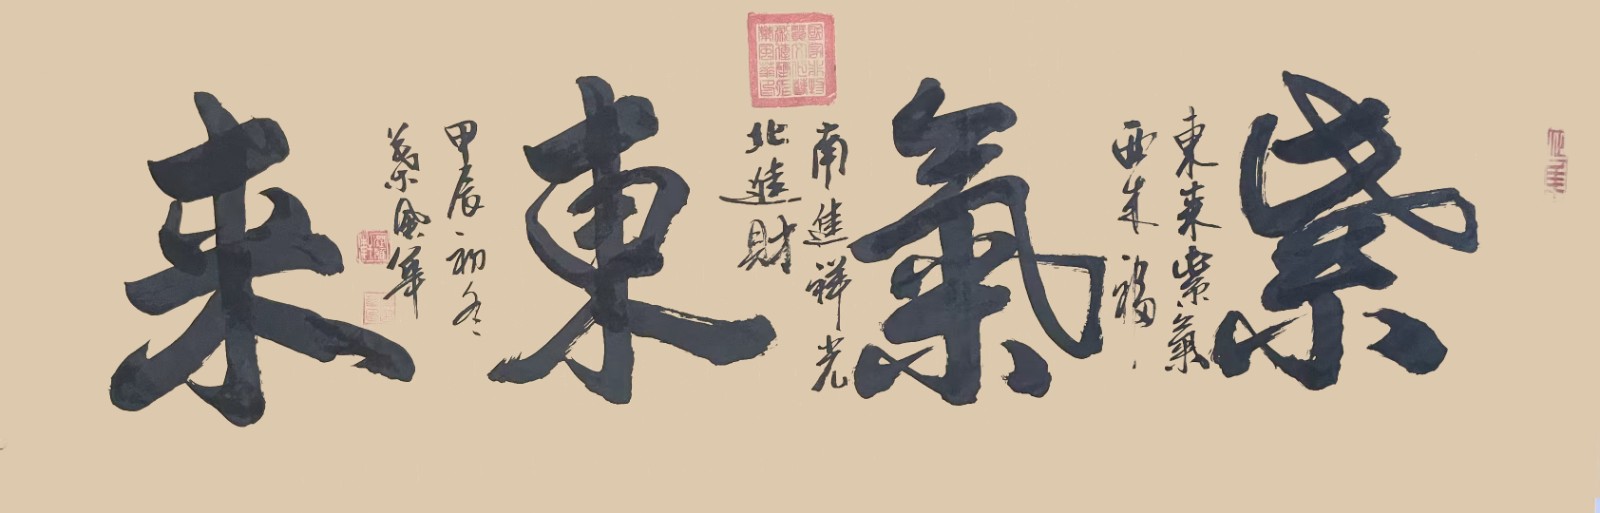 紫氣東来
東来紫氣
西来福
南進祥光
北進財
甲辰初冬